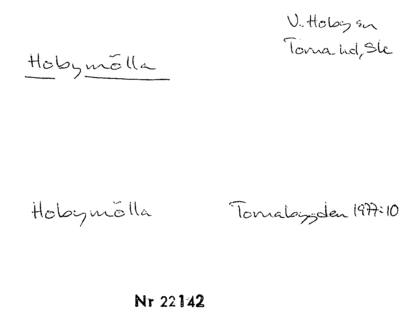 Hobymölla
V. Hoby sn
Torna hd, Sk
Hobymölla
Tornabygden 1977:10
Nr 22142